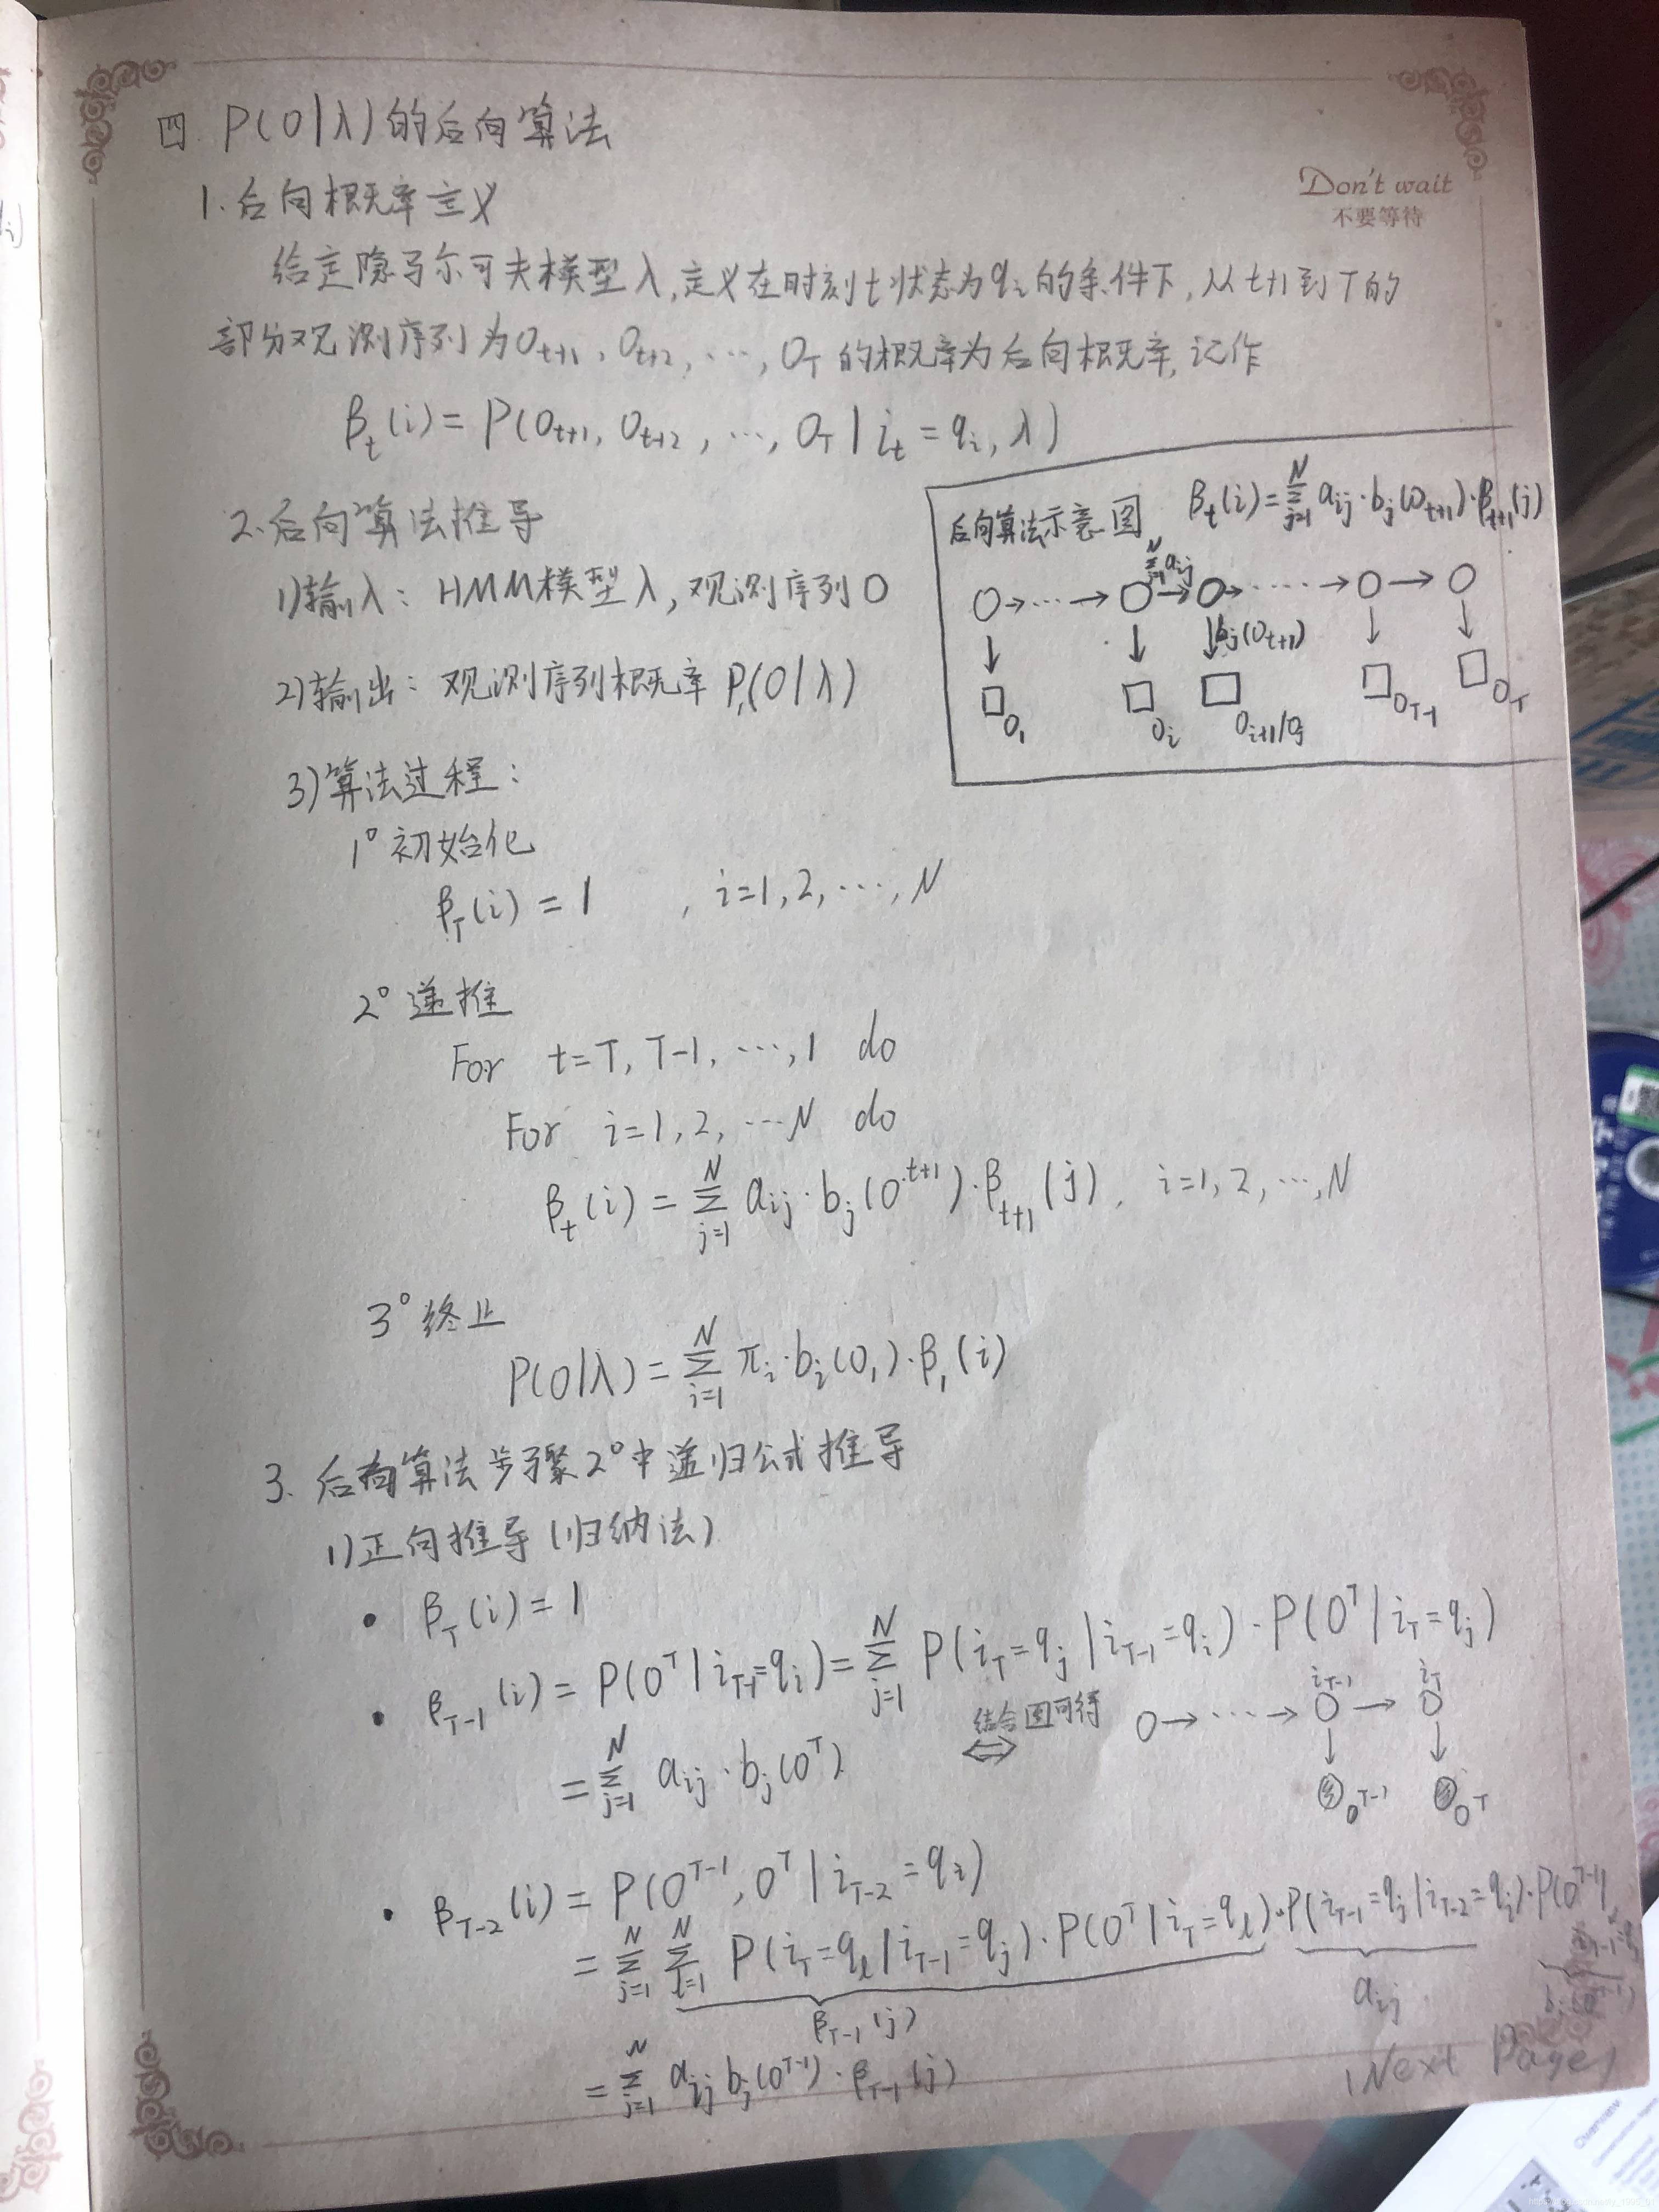 四. P(O|λ)的后向算法
Don't wait
不要等待
1.后向概率定义
给定隐马尔可夫模型λ,定义在时刻t状态为qᵢ的条件下,从t+1到T的
部分观测序列为Oₜ₊₁, Oₜ₊₂, ⋯, O_T 的概率为后向概率,记作
βₜ(i) = P(Oₜ₊₁, Oₜ₊₂, ⋯, O_T | iₜ = qᵢ, λ)
2.后向算法推导
1)输入: HMM模型λ,观测序列O
2)输出: 观测序列概率P(O|λ)
后向算法示意图 βₜ(i)=∑_{j=1}^{N} aᵢⱼ·bⱼ(Oₜ₊₁)·βₜ₊₁(j)
∑_{j=1}^{N} aᵢⱼ
○→⋯→○→○→⋯⋯→○→○
↓ ↓ ↓bⱼ(Oₜ₊₁) ↓ ↓
□O₁ □Oᵢ □Oᵢ₊₁/Oⱼ □O_{T-1} □O_T
3)算法过程:
1° 初始化
β_T(i) = 1 , i=1,2,⋯,N
2° 递推
For t=T, T-1, ⋯, 1 do
For i=1,2,⋯N do
βₜ(i) = ∑_{j=1}^{N} aᵢⱼ·bⱼ(O^{t+1})·βₜ₊₁(j), i=1,2,⋯,N
3° 终止
P(O|λ) = ∑_{i=1}^{N} πᵢ·bᵢ(O₁)·β₁(i)
3. 后向算法步骤2°中递归公式推导
1)正向推导(归纳法)
• β_T(i) = 1
• β_{T-1}(i) = P(O^T | i_{T-1}=qᵢ) = ∑_{j=1}^{N} P(i_T=qⱼ | i_{T-1}=qᵢ)·P(O^T | i_T=qⱼ)
= ∑_{j=1}^{N} aᵢⱼ·bⱼ(O^T)
结合图可得
⇔
i_{T-1} i_T
○→⋯→○→○
↓ ↓
O^{T-1} O^T
• β_{T-2}(i) = P(O^{T-1}, O^T | i_{T-2}=qᵢ)
= ∑_{j=1}^{N} ∑_{l=1}^{N} P(i_T=q_l | i_{T-1}=qⱼ)·P(O^T | i_T=q_l)·P(i_{T-1}=qⱼ | i_{T-2}=qᵢ)·P(O^{T-1}|
β_{T-1}(j) aᵢⱼ
= ∑_{j=1}^{N} aᵢⱼ bⱼ(O^{T-1})·β_{T-1}(j)
(Next Page)